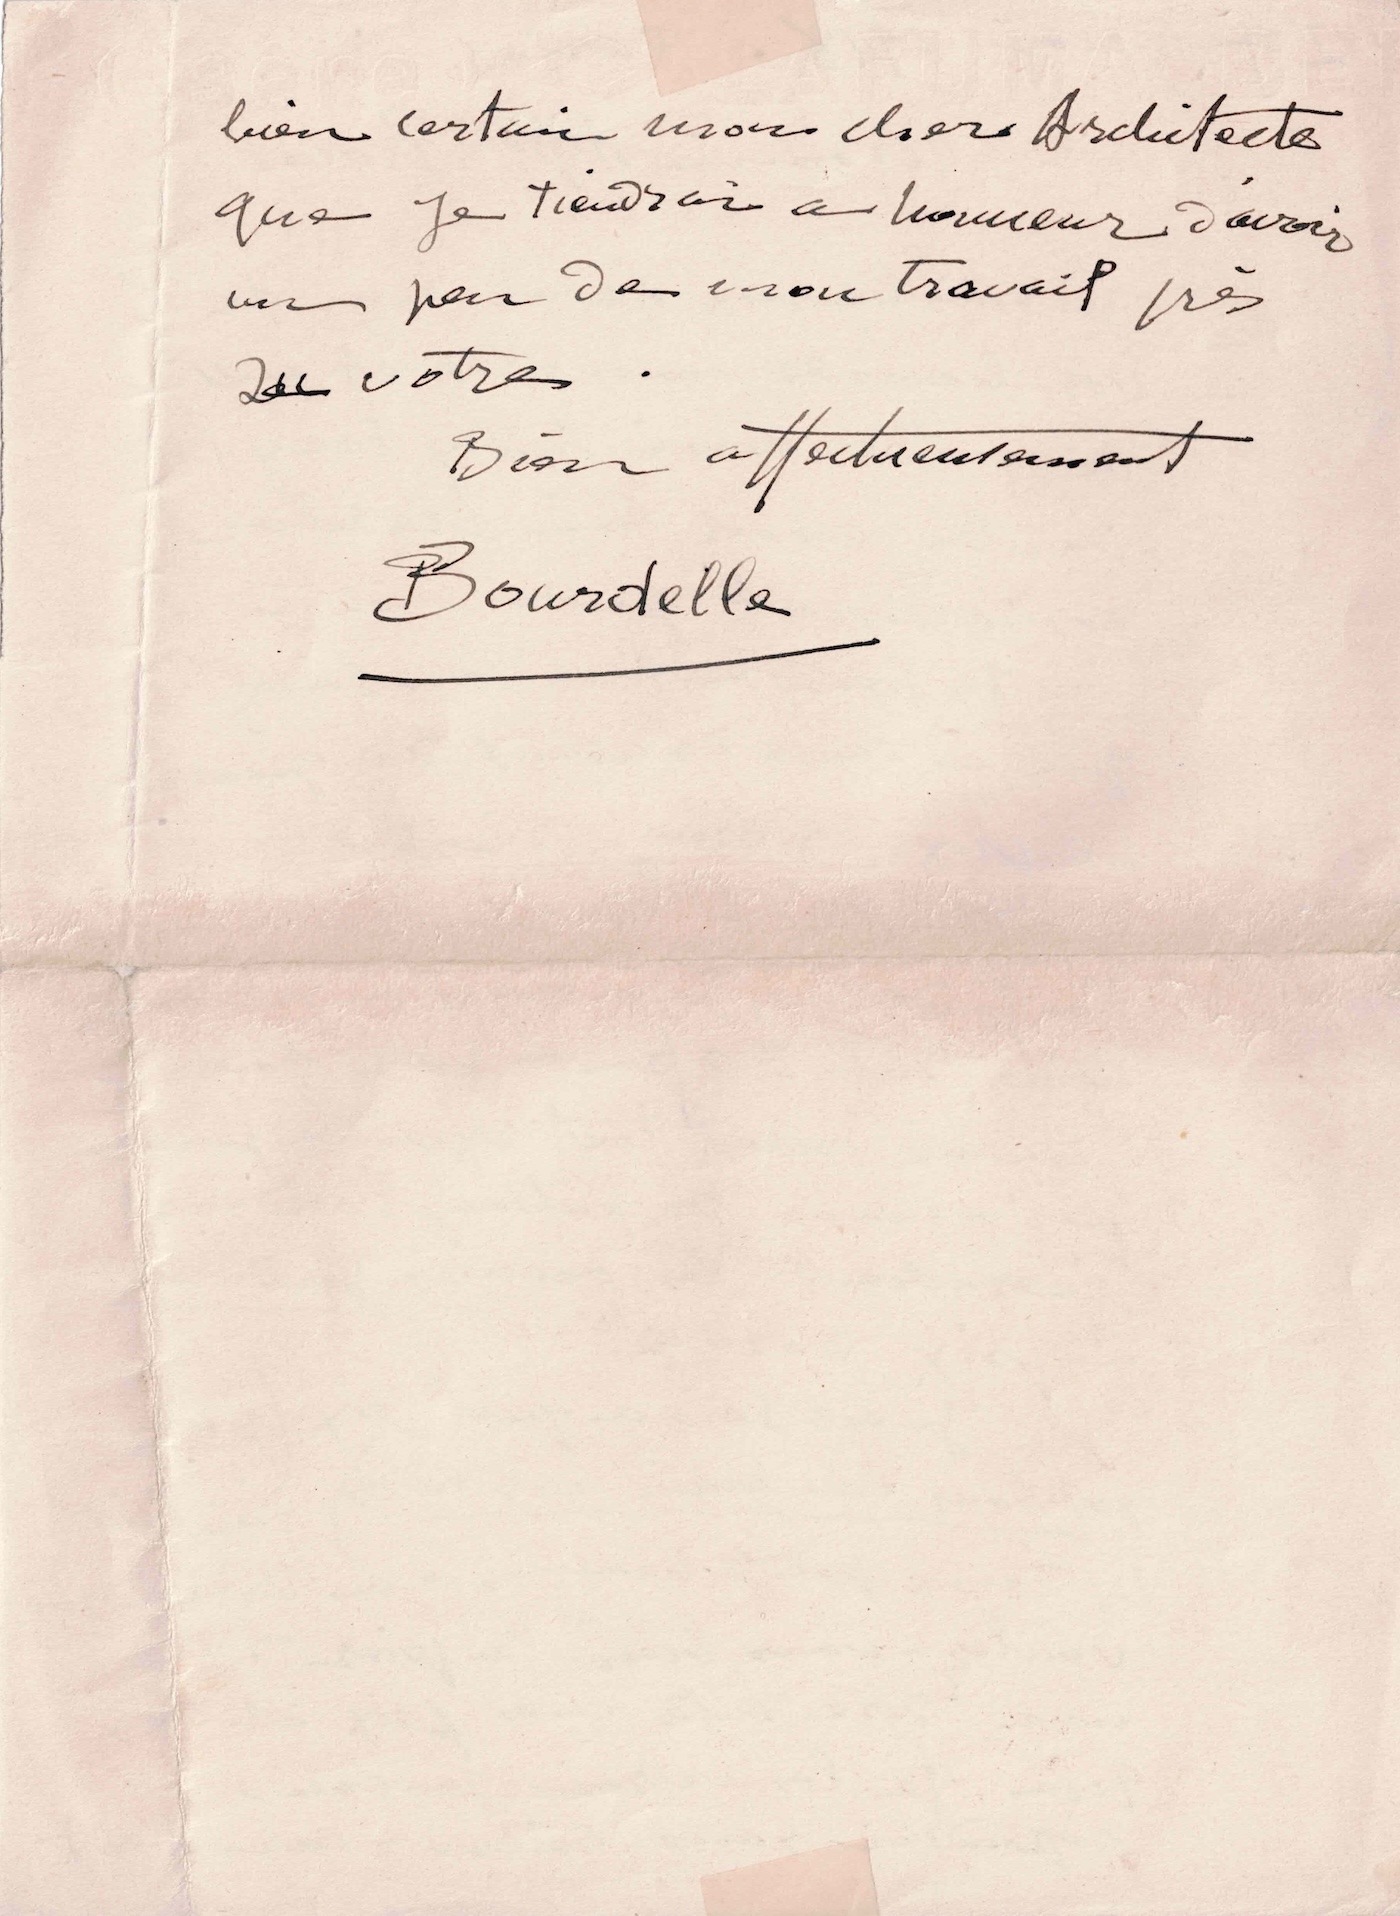 bien certain mon cher Architecte
que je tiendrai a honneur d'avoir
un peu de mon travail près
du votre.
Bien affectueusement
Bourdelle